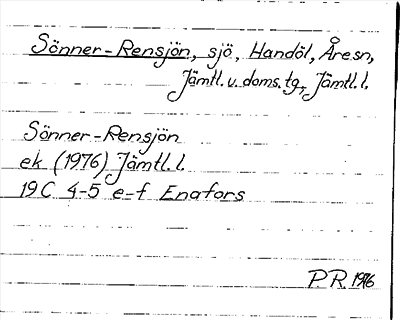 Sönner-Rensjön, sjö, Handöl, Åresn,
Jämtl. v. doms. tg, Jämtl. l.
Sönner-Rensjön
ek (1976) Jämtl. l.
19C 4-5 e-f Enafors
P R 1976